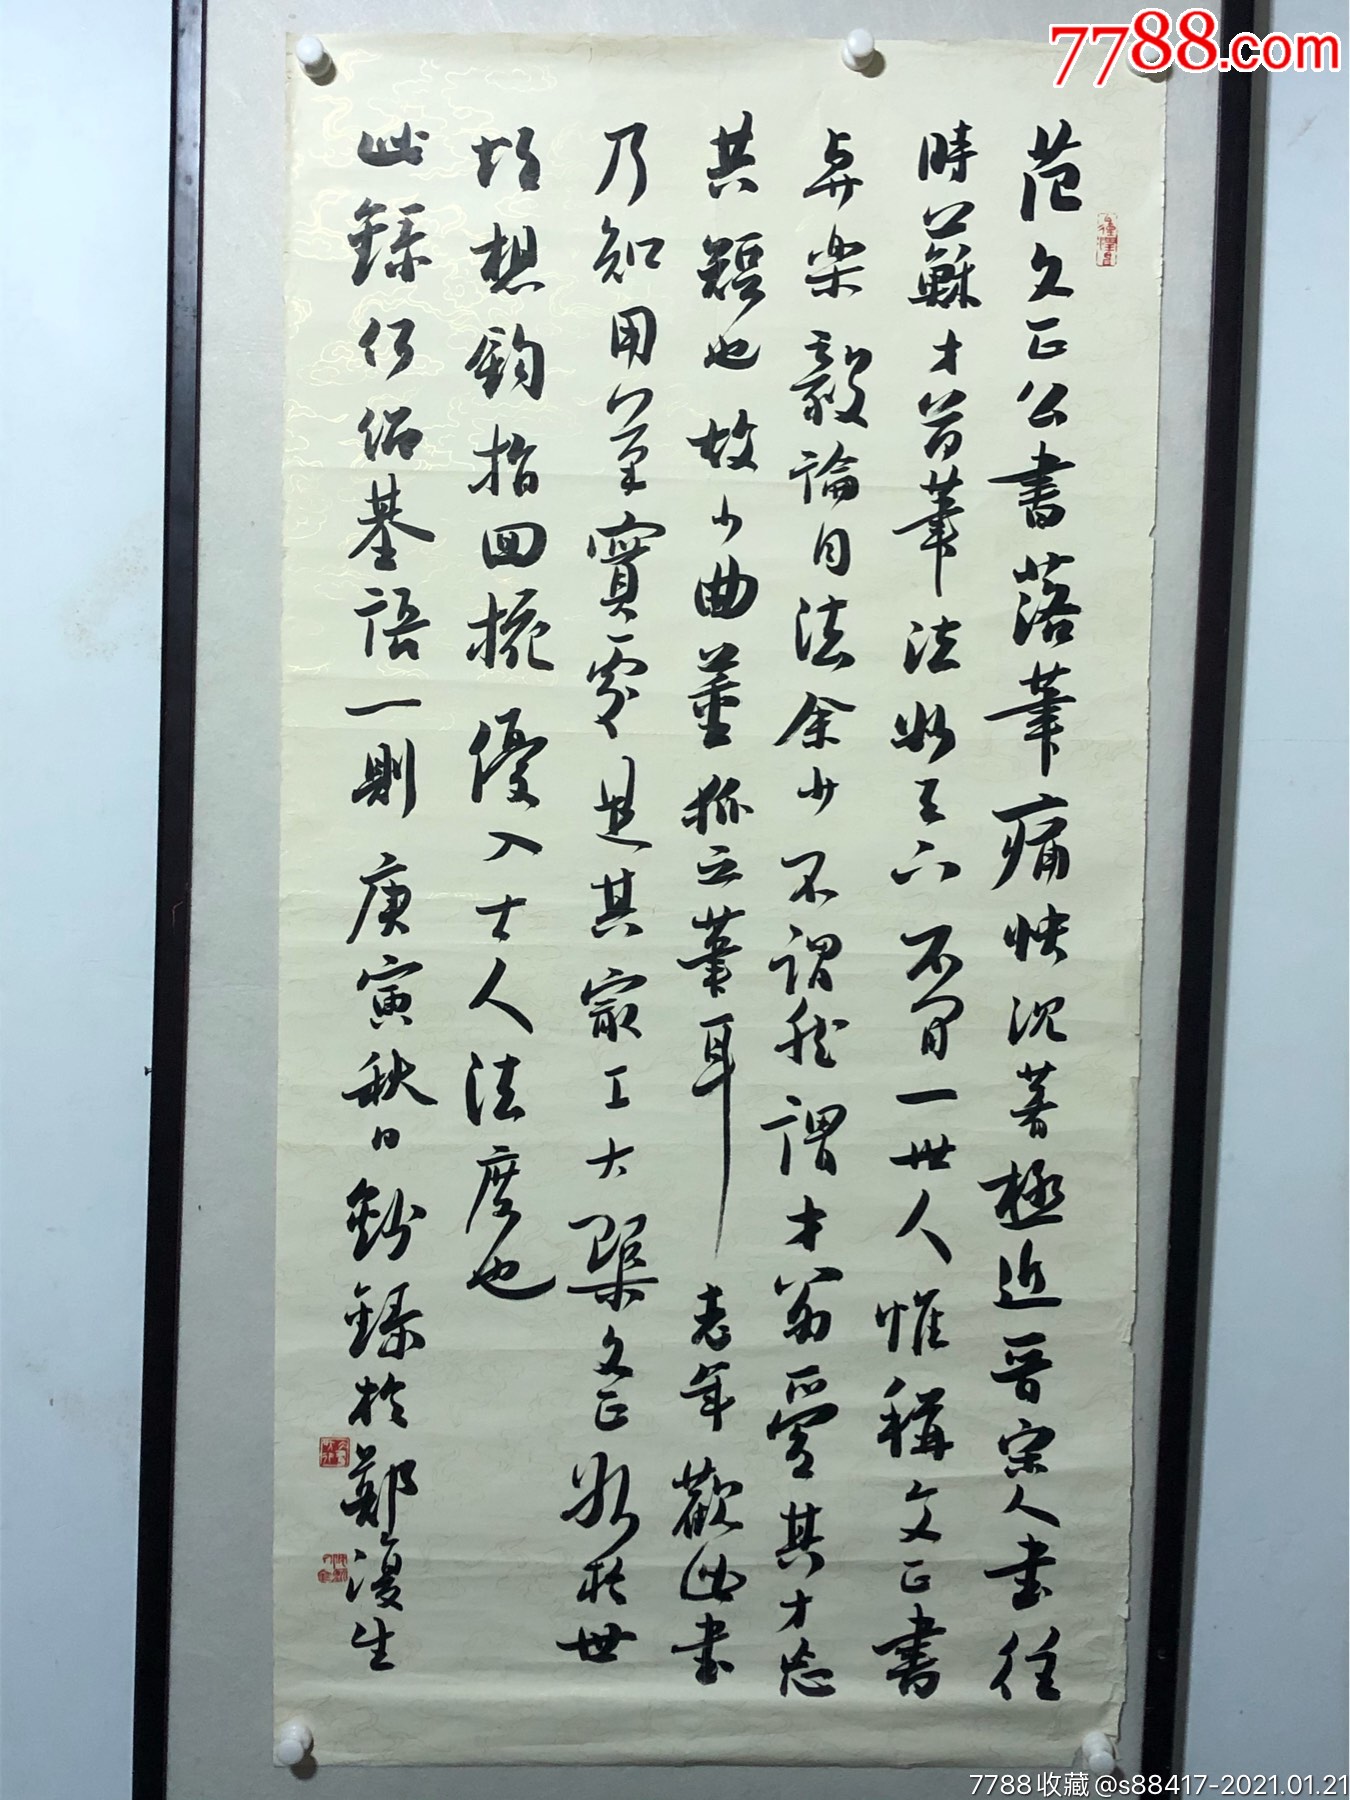 范文正公書落筆痛快沉著極近晉宋人書往
時蘇才翁筆法妙天下不肯一世人惟稱文正書
與楽毅論同法余少不謂然謂才翁愛其才忘
其短也故少曲董狐之筆耳老年觀此書
乃知用筆實處是其最工大概文正妙於世
故想鉤指回捥優入古人法度也
此錄何紹基語一則庚寅秋日鈔錄於鄭漫生
7788.com
7788收藏@s88417-2021.01.21